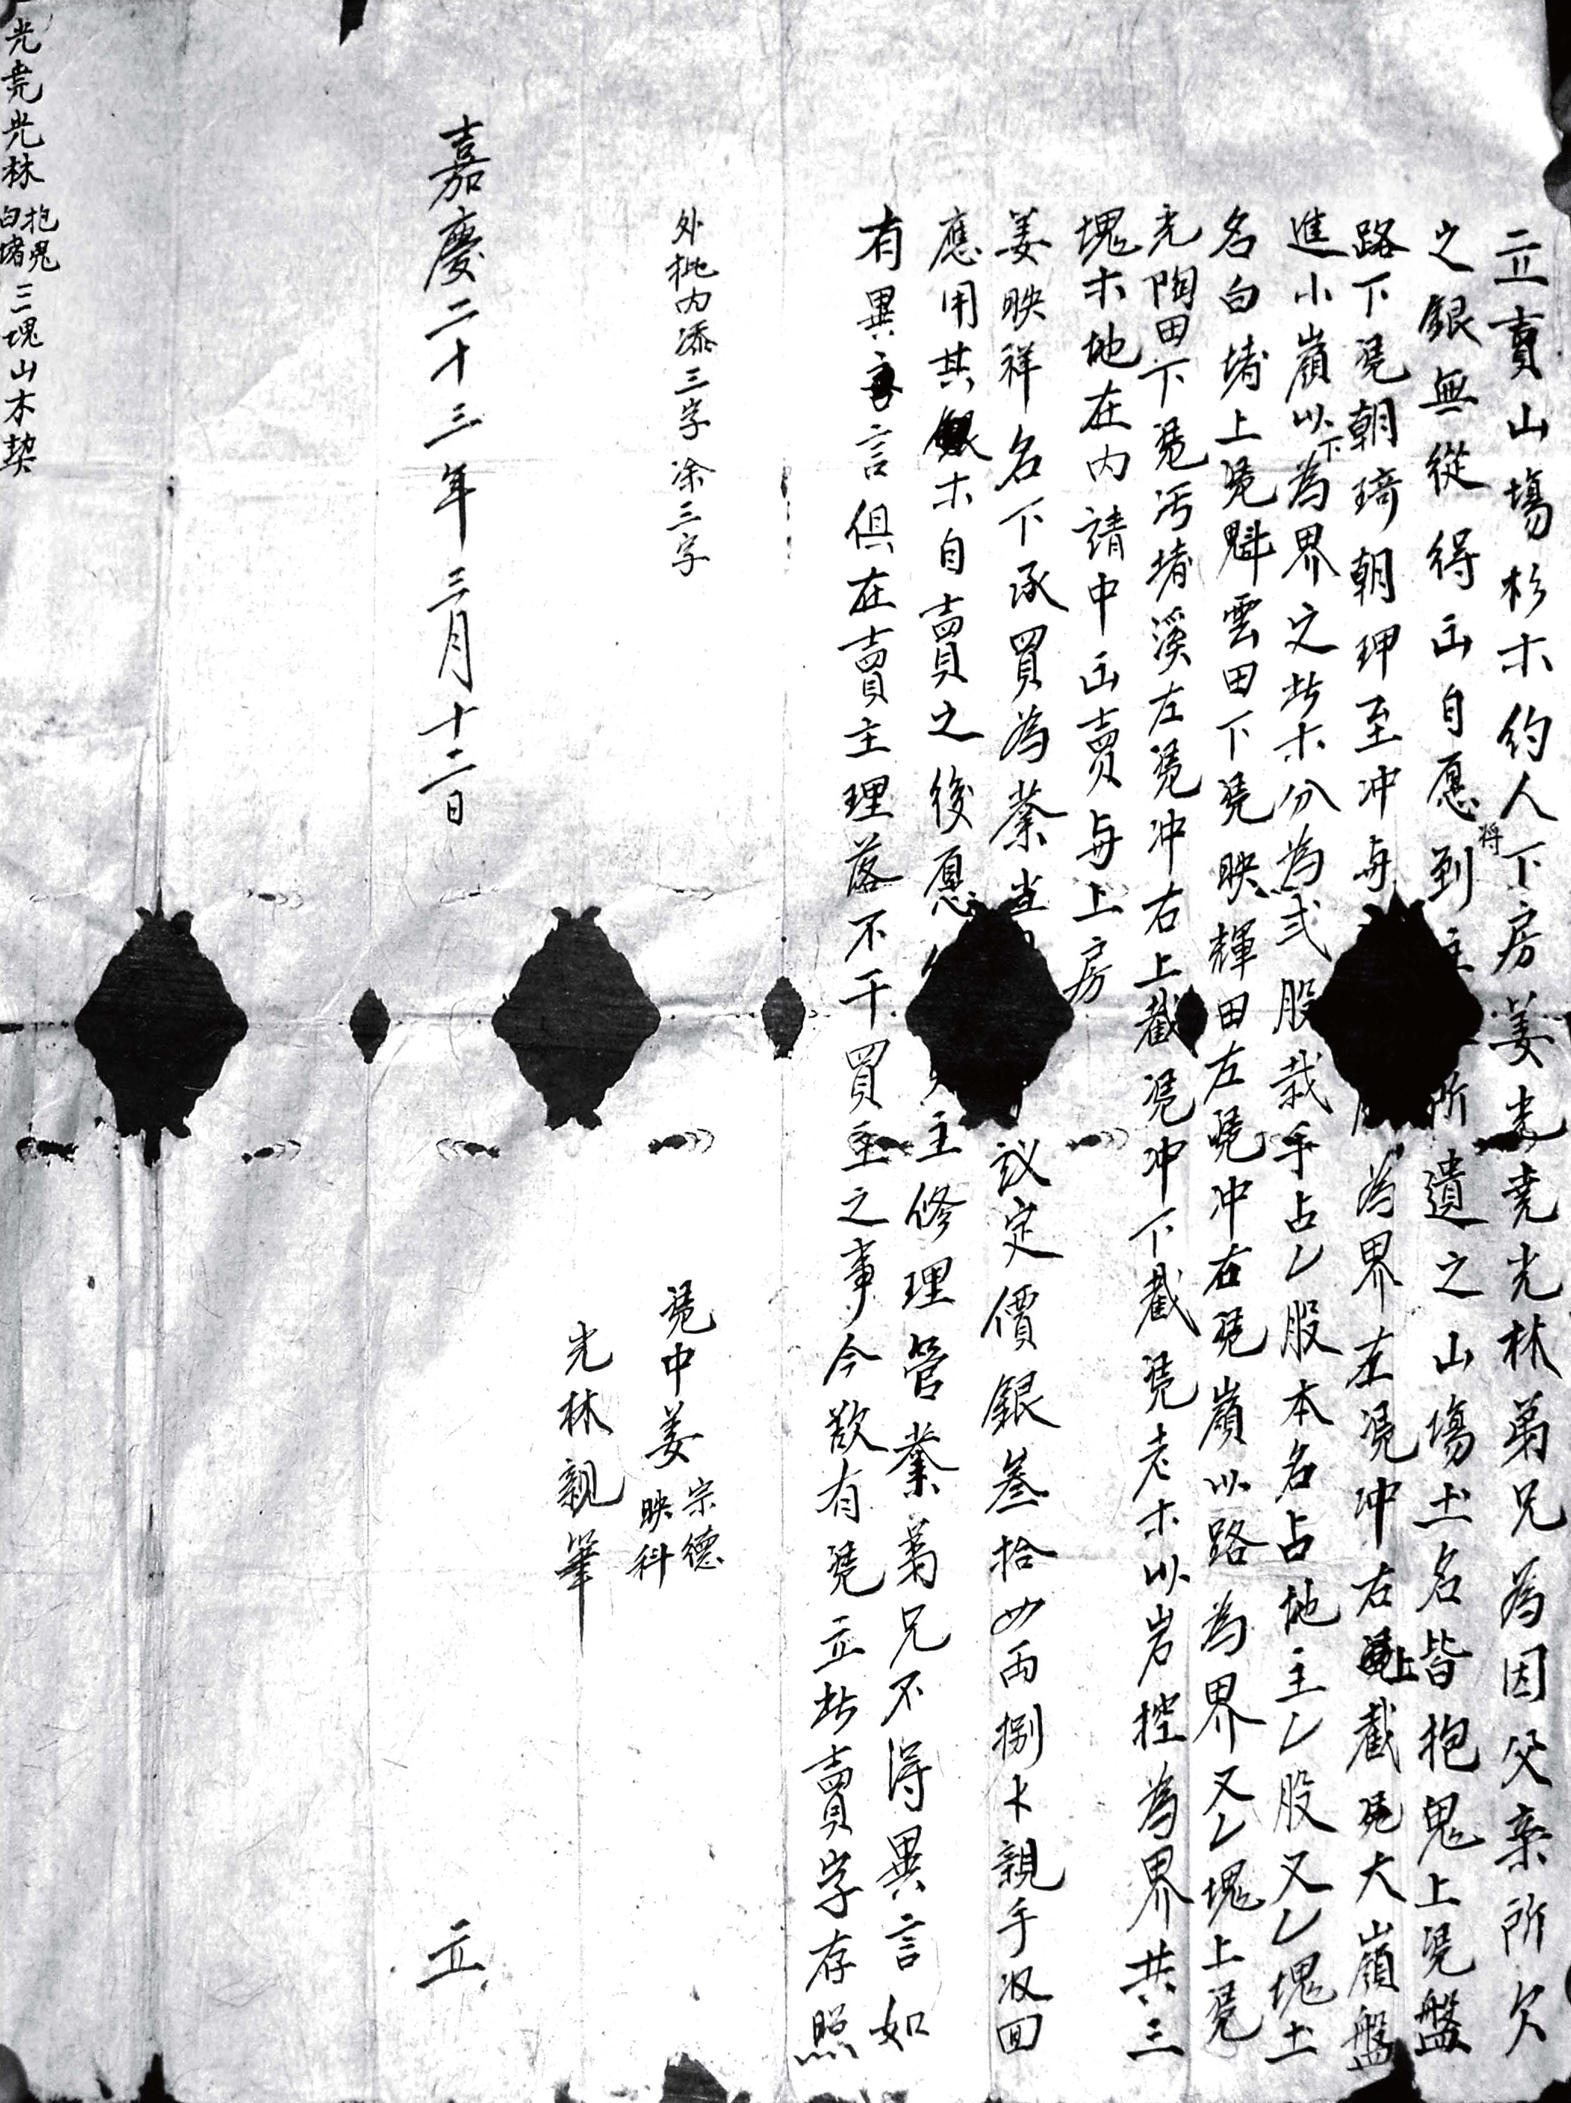 立賣山塲杉木约人下房姜光尭光林弟兄為因父亲所欠
之銀無從得出自愿將到所遺之山塲土名皆抱鬼上凴盤
路下凴朝琦朝珅至冲与為界左凴冲右上截凴大嶺盤
進小嶺以下為界之此木分為弍股栽手占乙股本名占地主乙股又乙塊土
名白堵上凴魁雲田下凴映輝田左凴冲右凴嶺以路為界又乙塊上凴
光陶田下凴污堵溪左凴冲右上截凴冲下截凴老木以岩控為界共三
塊木地在内請中出賣与上房
姜映祥名下承買為業當議定價銀叁拾四两捌卜親手收回
應用其木自賣之後愿主修理管業弟兄不得異言如
有異言俱在賣主理落不干買主之事今欲有凴立此賣字存照
外批内添三字涂三字
凴中姜宗德
映科
光林親筆
嘉慶二十三年三月十二日立
光尭光林抱鬼白堵三塊山木契